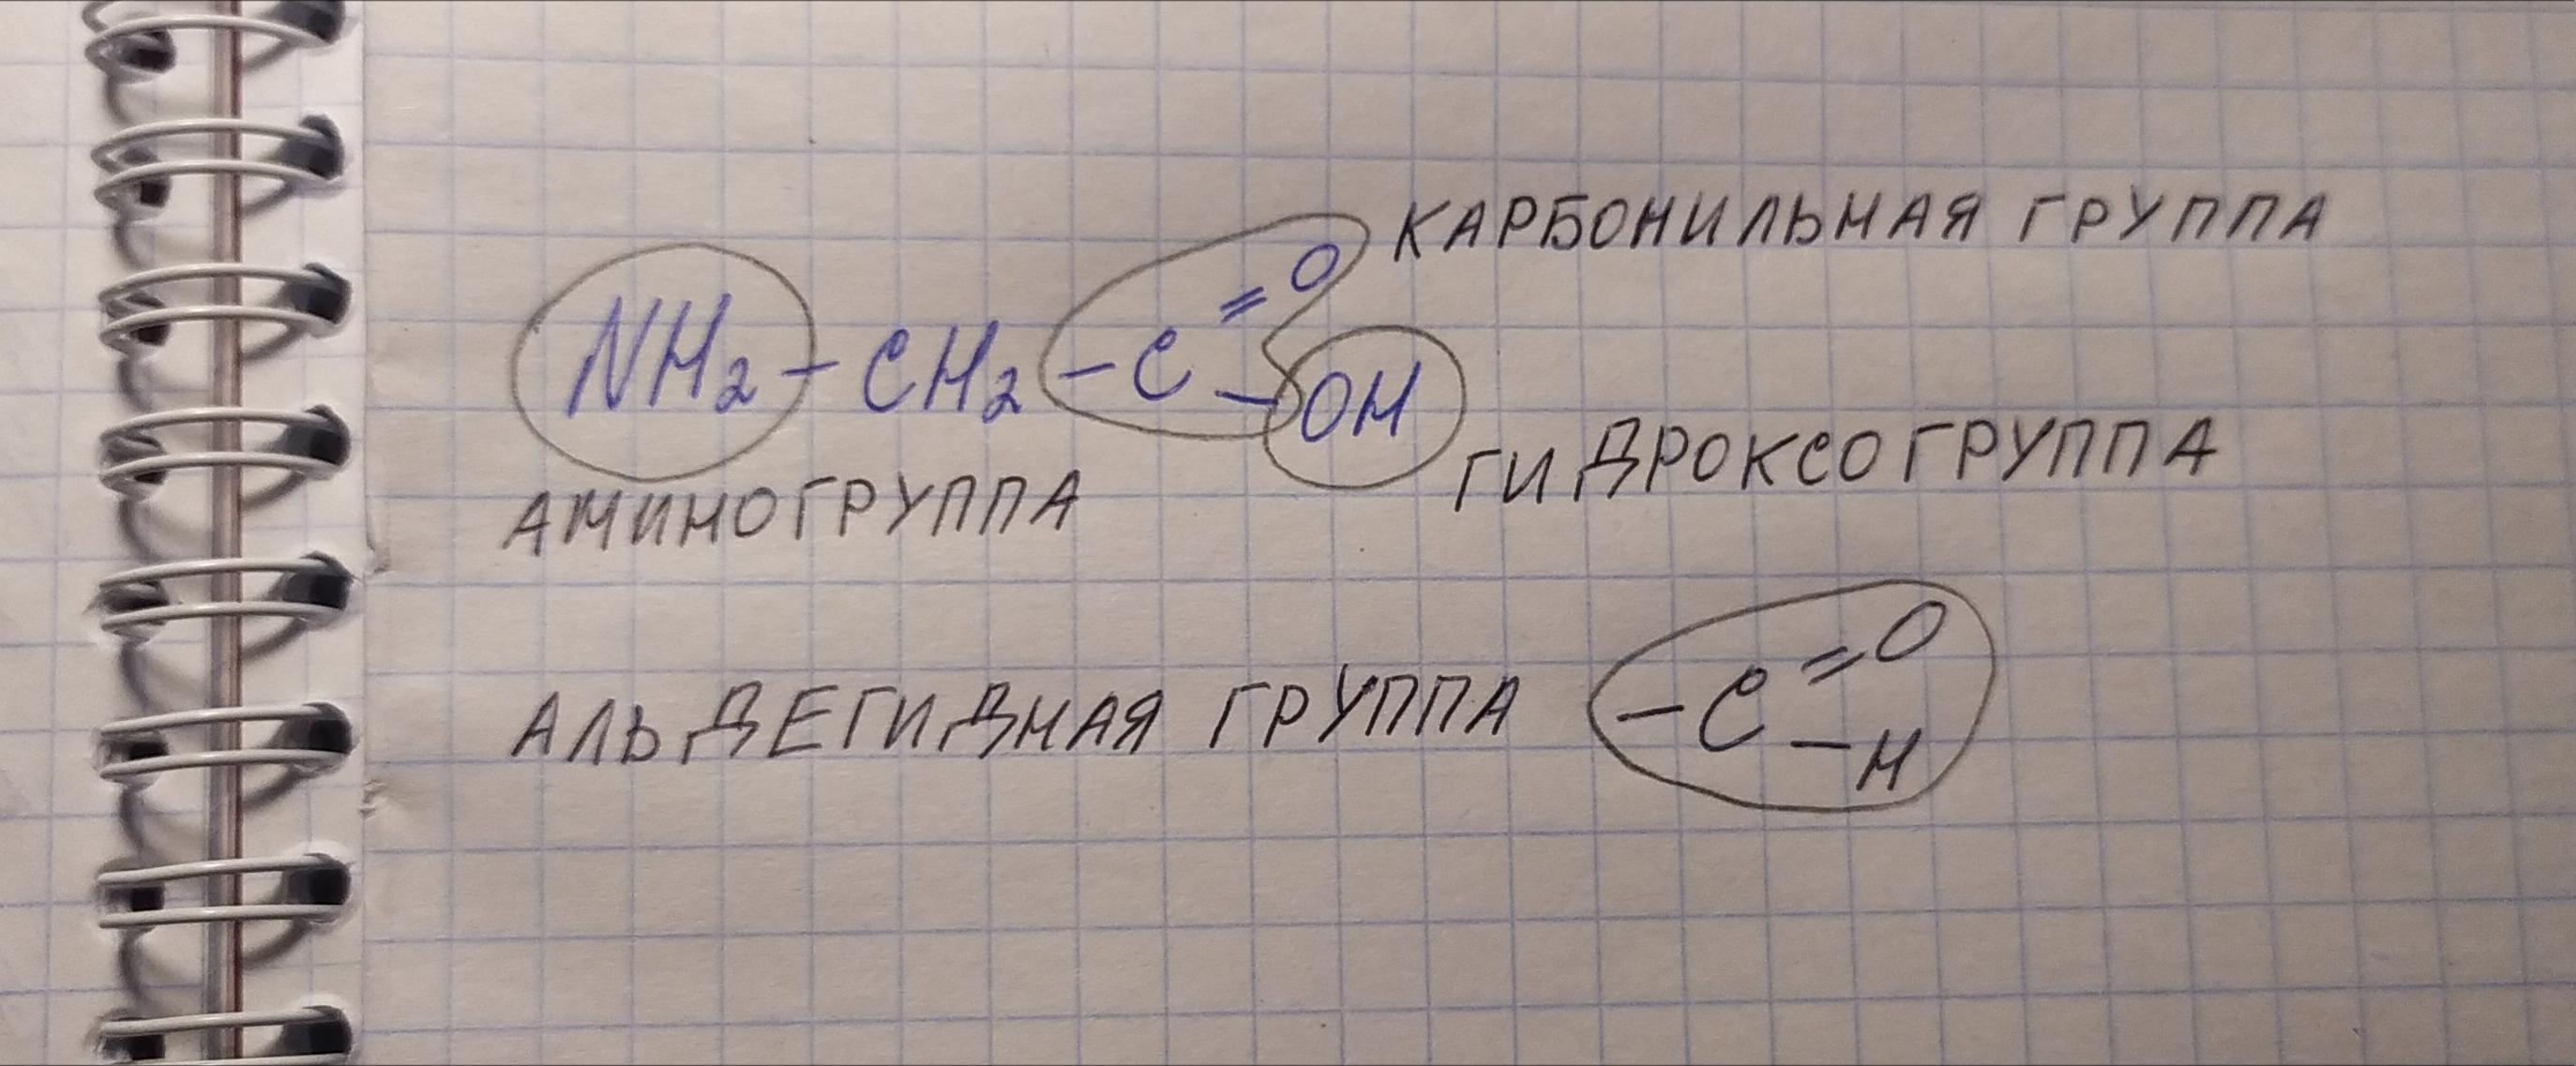 КАРБОНИЛЬНАЯ ГРУППА
NH₂ - CH₂ - C = O
- OH
ГИДРОКСОГРУППА
АМИНОГРУППА
АЛЬДЕГИДНАЯ ГРУППА - C = O
- H